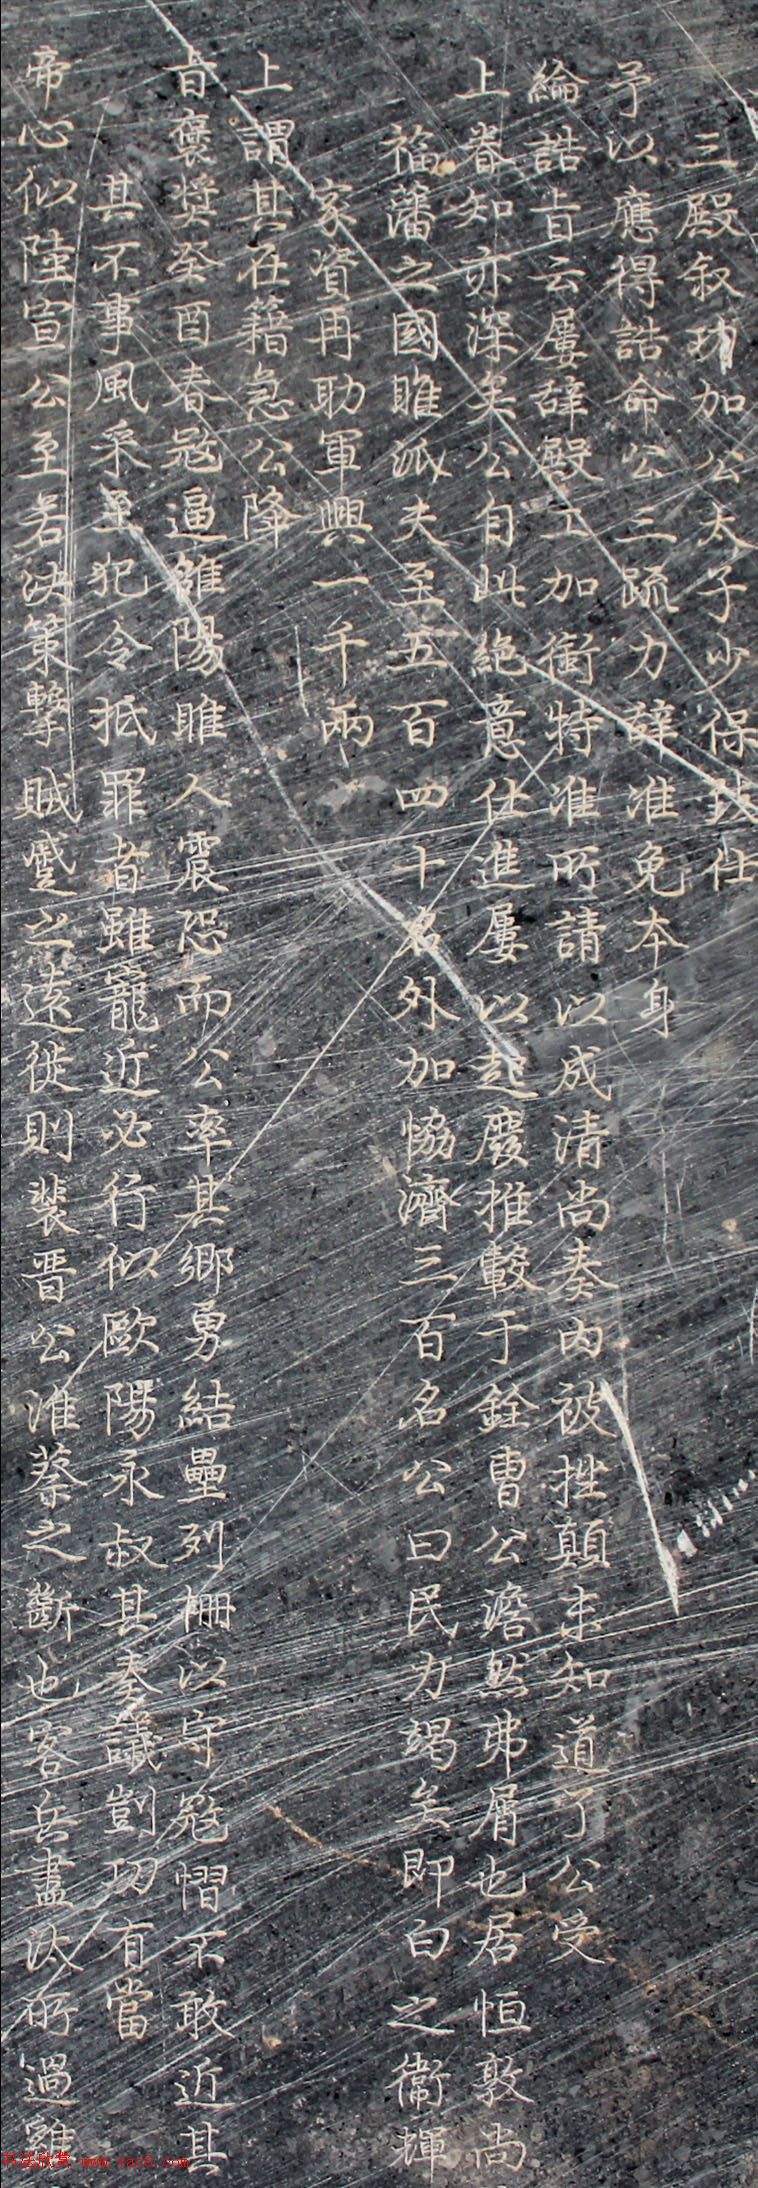 三殿叙功加公太子少保致仕
予以應得誥命公三疏力辭准免本身
綸誥旨云屢辭殿工加銜特准所請以成清尚奏內被挫顛末知道了公受
上眷知亦深矣公自此絕意仕進屢以起廢推轂于銓曹公澹然弗屑也居恒敦尚
福藩之國睢派夫至五百四十名外加恊濟三百名公曰民力竭矣即白之衞輝
家資再助軍興一千兩
上謂其在籍急公降
旨褒奨癸酉春冦逼雒陽睢人震恐而公率其鄉勇結壘列柵以守冦慴不敢近其
其不事風采至犯令抵罪者雖寵近必行似歐陽永叔其奏議剴切有當
帝心似陸宣公至若決策擊賊蹙之遠徙則裴晋公淮蔡之斷也客兵盡汰所過雞
书法欣赏 www.yac8.com